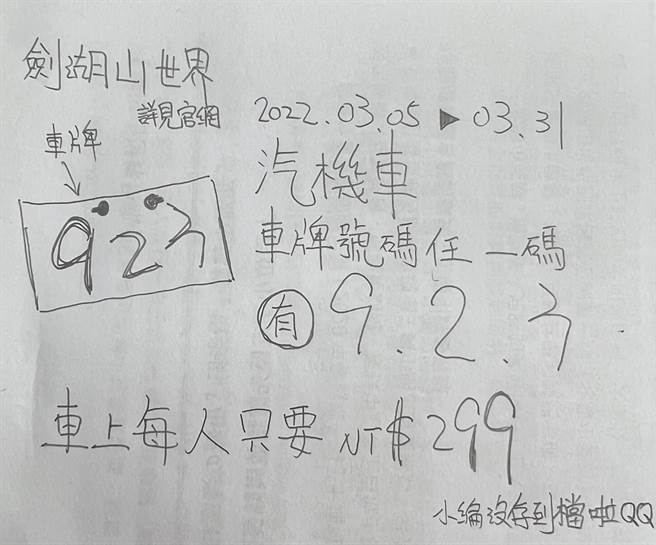 劍湖山世界
詳見官網
2022.03.05 ▶ 03.31
車牌
923
汽機車
車牌號碼任一碼
有 9.2.3
車上每人只要 NT$299
小編沒存到檔啦QQ